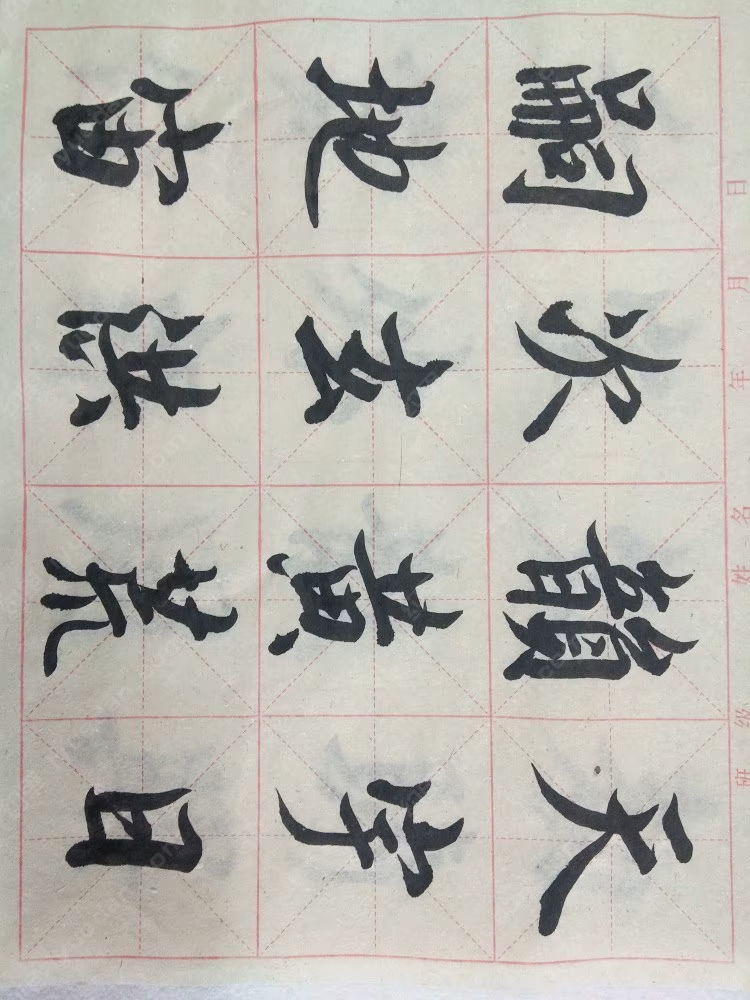 班级 姓名 年 月 日
嗣次韻天
地玄黄宇
宙洪荒日